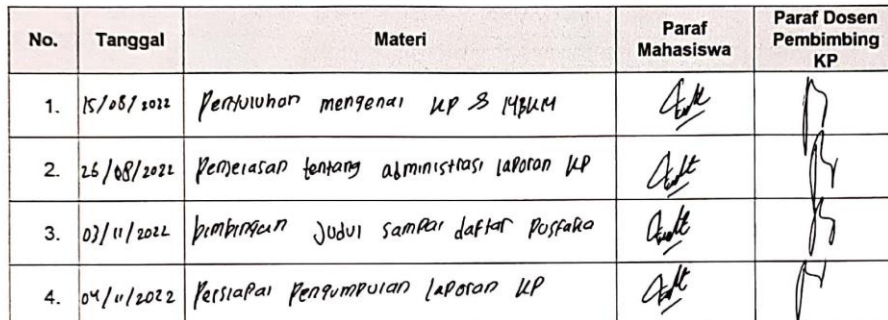 No. Tanggal Materi Paraf Mahasiswa Paraf Dosen Pembimbing KP
1. 15/08/2022 Penyuluhan mengenai KP & MBKM
2. 26/08/2022 Penjelasan tentang administrasi laporan KP
3. 03/11/2022 bimbingan Judul sampai daftar Pustaka
4. 04/11/2022 Persiapan Pengumpulan laporan KP